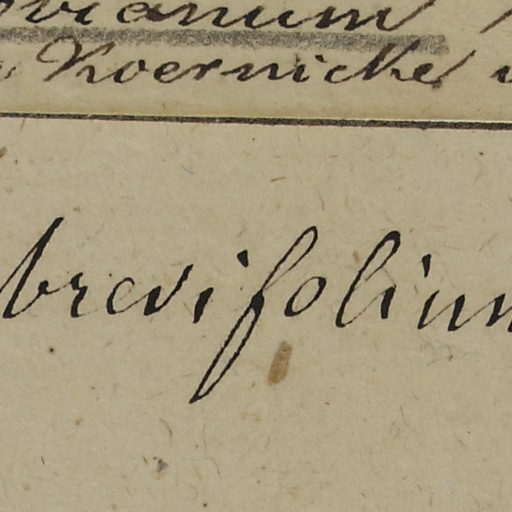 vianum
Koernicke
brevifolium